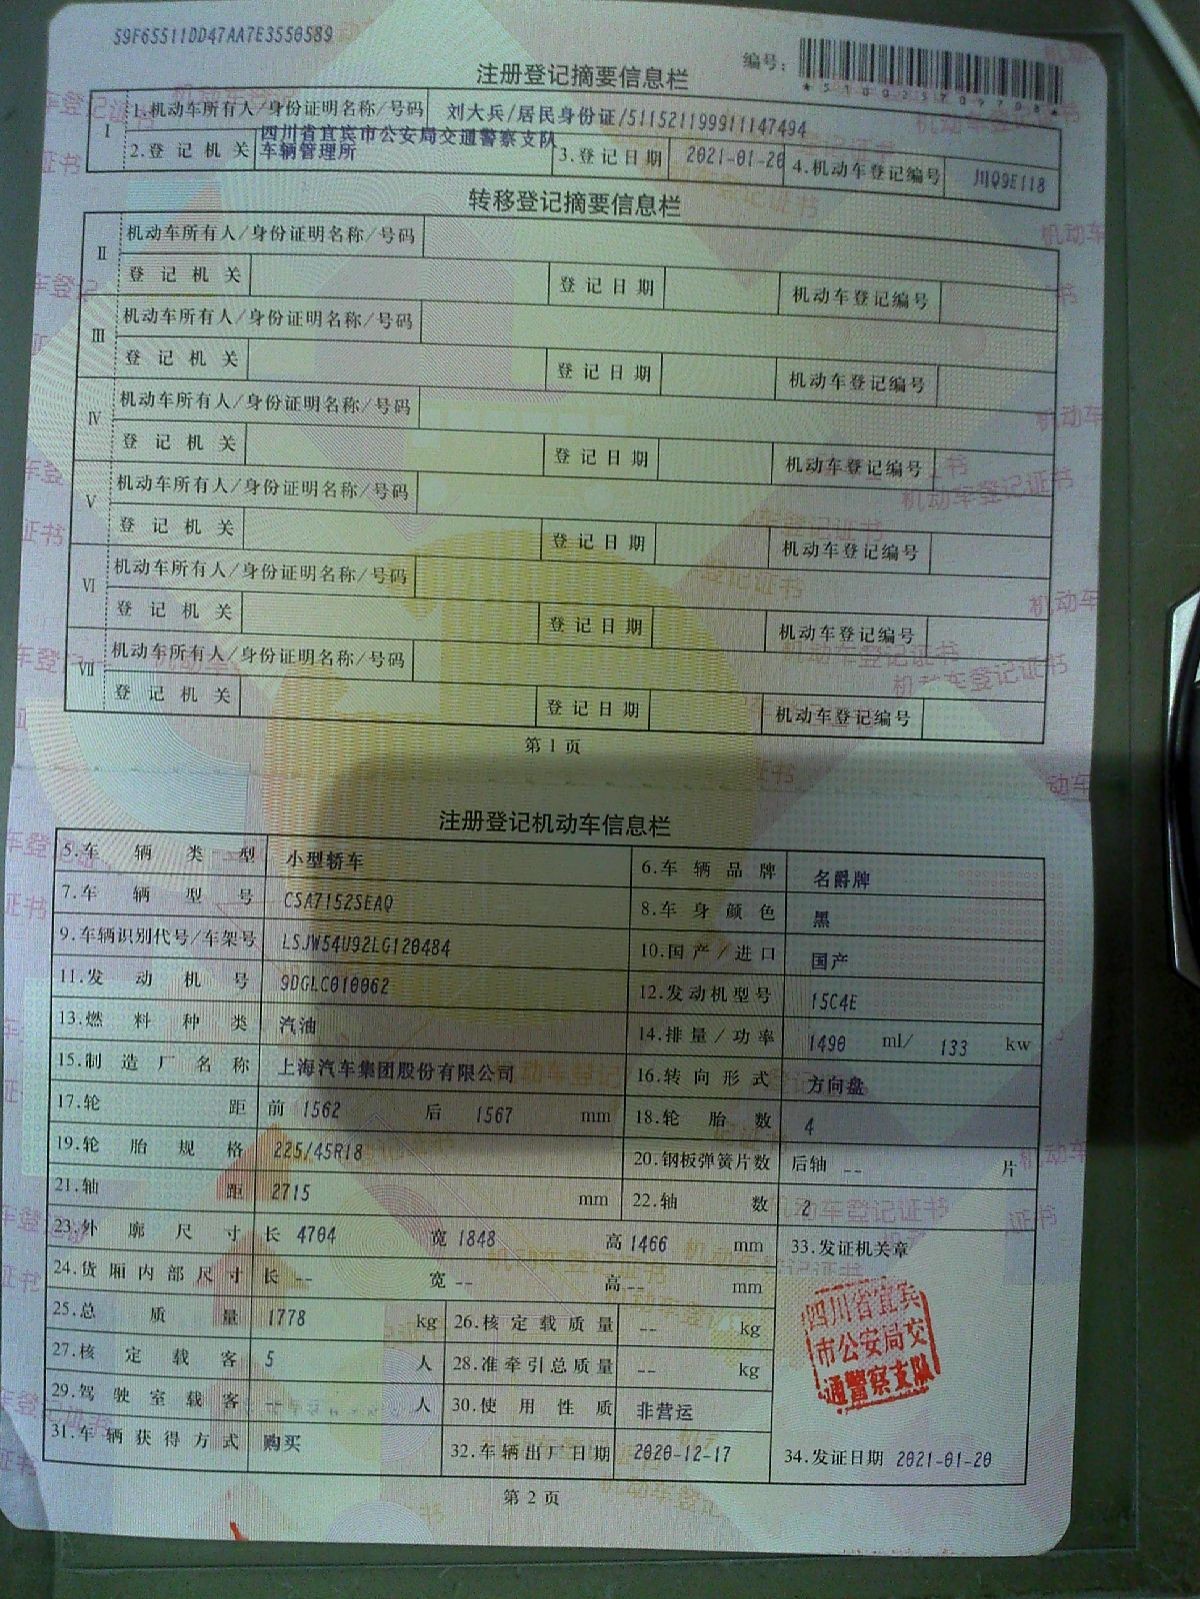 59F65511DD47AA7E3550589
编号：
注册登记摘要信息栏
I 1.机动车所有人/身份证明名称/号码 刘大兵/居民身份证/511521199911147494
2.登记机关 四川省宜宾市公安局交通警察支队车辆管理所 3.登记日期 2021-01-20 4.机动车登记编号 川Q9E118
转移登记摘要信息栏
II 机动车所有人/身份证明名称/号码
登记机关 登记日期 机动车登记编号
III 机动车所有人/身份证明名称/号码
登记机关 登记日期 机动车登记编号
IV 机动车所有人/身份证明名称/号码
登记机关 登记日期 机动车登记编号
V 机动车所有人/身份证明名称/号码
登记机关 登记日期 机动车登记编号
VI 机动车所有人/身份证明名称/号码
登记机关 登记日期 机动车登记编号
VII 机动车所有人/身份证明名称/号码
登记机关 登记日期 机动车登记编号
第1页
注册登记机动车信息栏
5.车辆类型 小型轿车 6.车辆品牌 名爵牌
7.车辆型号 CSA7152SEAQ 8.车身颜色 黑
9.车辆识别代号/车架号 LSJW54U92LG120484 10.国产/进口 国产
11.发动机号 9DGLC010062 12.发动机型号 15C4E
13.燃料种类 汽油 14.排量/功率 1490 ml/ 133 kw
15.制造厂名称 上海汽车集团股份有限公司 16.转向形式 方向盘
17.轮距 前 1562 后 1567 mm 18.轮胎数 4
19.轮胎规格 225/45R18 20.钢板弹簧片数 后轴 -- 片
21.轴距 2715 mm 22.轴数 2
23.外廓尺寸 长 4704 宽 1848 高 1466 mm 33.发证机关章
24.货厢内部尺寸 长 -- 宽 -- 高 -- mm
25.总质量 1778 kg 26.核定载质量 -- kg
27.核定载客 5 人 28.准牵引总质量 -- kg
29.驾驶室载客 -- 人 30.使用性质 非营运
31.车辆获得方式 购买 32.车辆出厂日期 2020-12-17 34.发证日期 2021-01-20
四川省宜宾
市公安局交
通警察支队
第2页